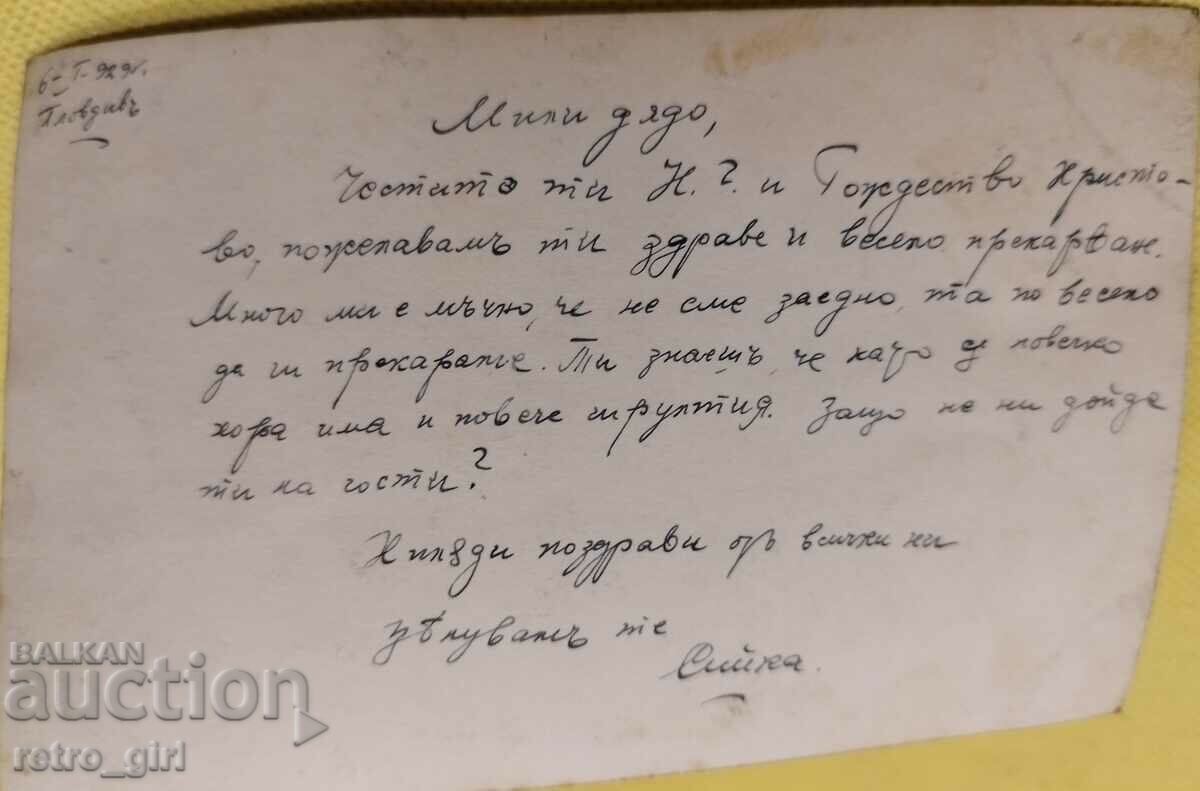 6-I-929г.
Пловдивъ
Мили дядо,
Честито ти Н. Г. и Рождество Христо-
во, пожелавамъ ти здраве и весело прекарване.
Много ми е мъчно, че не сме заедно, та по весело
да ги прекараме. Ти знаешъ, че като се повечко
хора има и повече
Защо не ни дойде
ти на гости?
Хиляди поздрави отъ всички ни
Цѣлувамъ те
Сийка.
BALKAN
auction
retro_girl